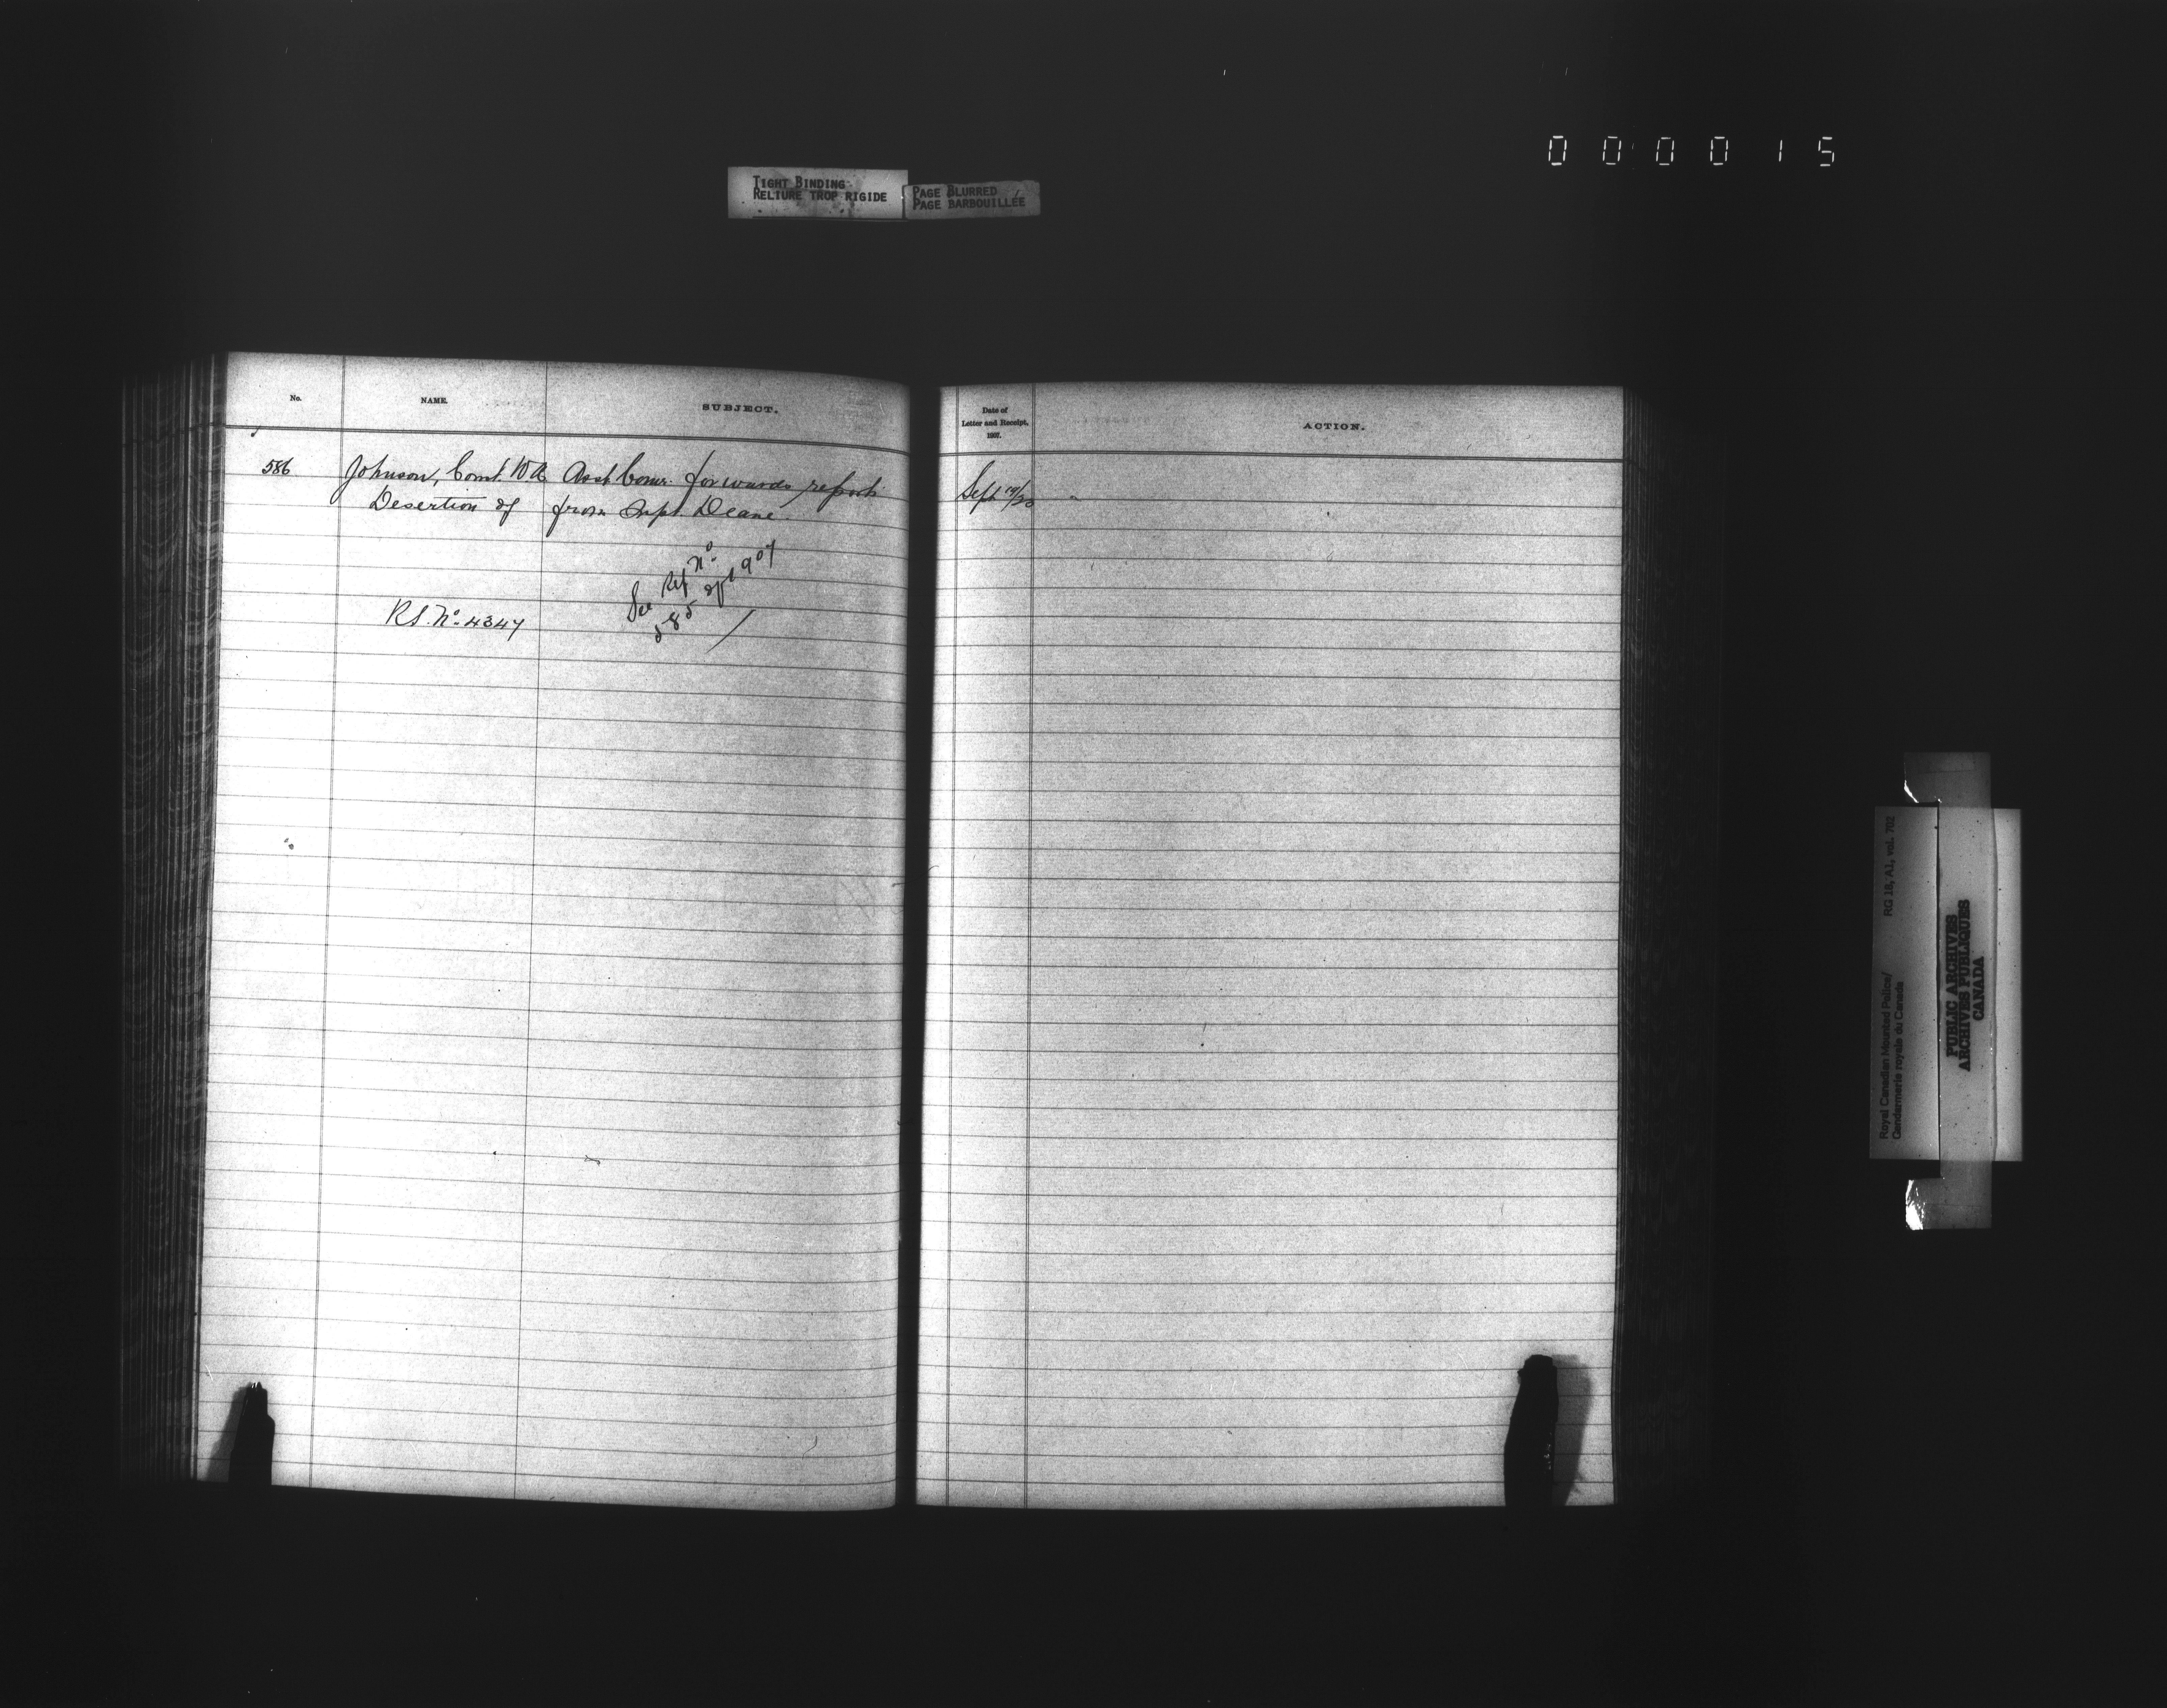 000015
TIGHT BINDING
RELIURE TROP RIGIDE
PAGE BLURRED
PAGE BARBOUILLÉE
No. NAME. SUBJECT.
586 Johnson, Const. W.A. Asst Comr. forwards report
Desertion of from Supt. Deane.
See Ref Nº
585 of 1907
RS. Nº 4347
Date of
Letter and Receipt,
1907.
ACTION.
Sept 19/20
Royal Canadian Mounted Police/
Gendarmerie royale du Canada
RG 18, A1, vol. 702
PUBLIC ARCHIVES
ARCHIVES PUBLIQUES
CANADA